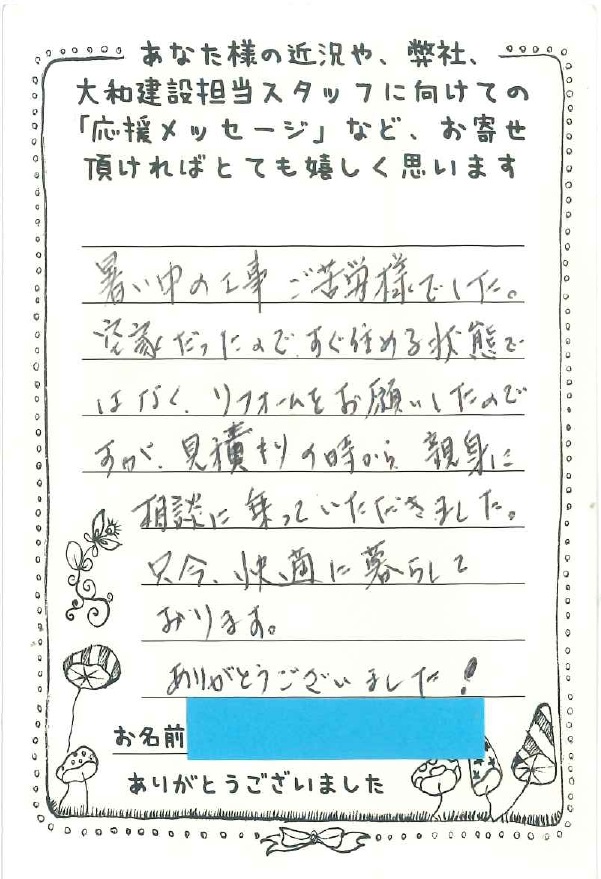 あなた様の近況や、弊社、
大和建設担当スタッフに向けての
「応援メッセージ」など、お寄せ
頂ければとても嬉しく思います
暑い中の工事 ご苦労様でした。
空家だったので、すぐ住める状態で
はなく、リフォームをお願いしたので
すが、見積もりの時から、親身に
相談に乗っていただきました。
只今、快適に暮らして
おります。
ありがとうございました!
お名前
ありがとうございました